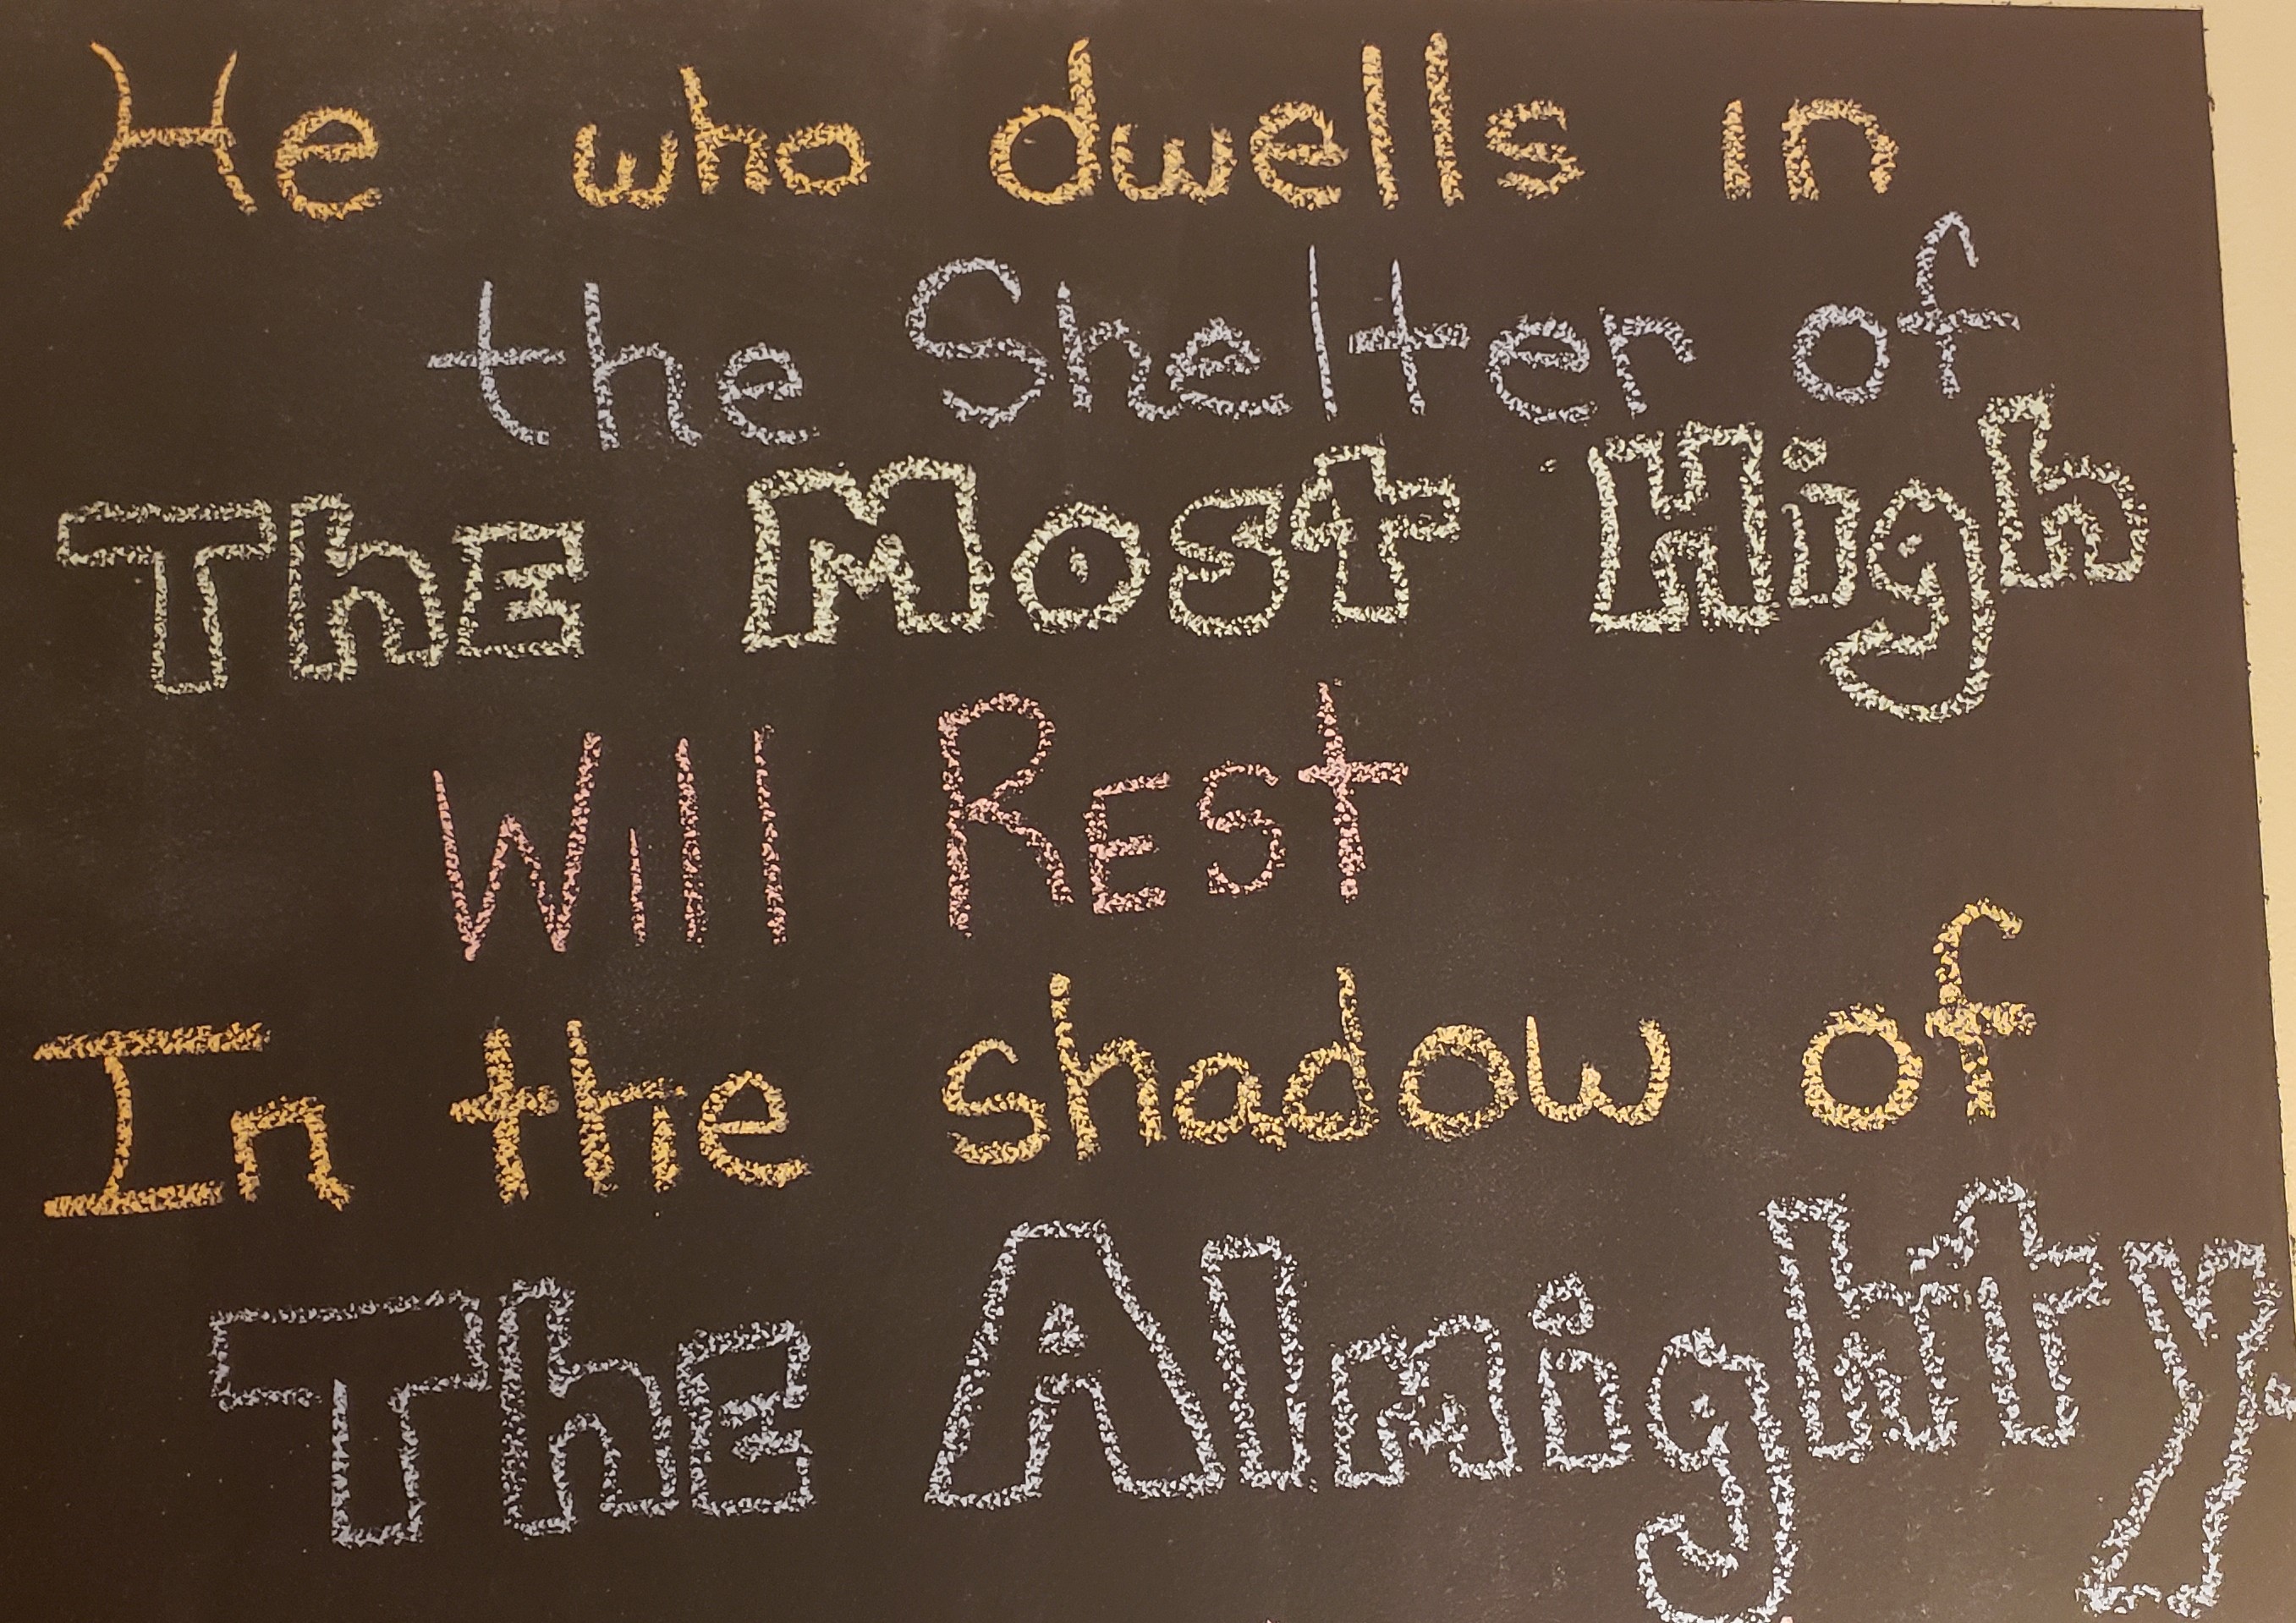 He who dwells in
the Shelter of
ThE Most High
Will REst
In the shadow of
ThE Almighty.